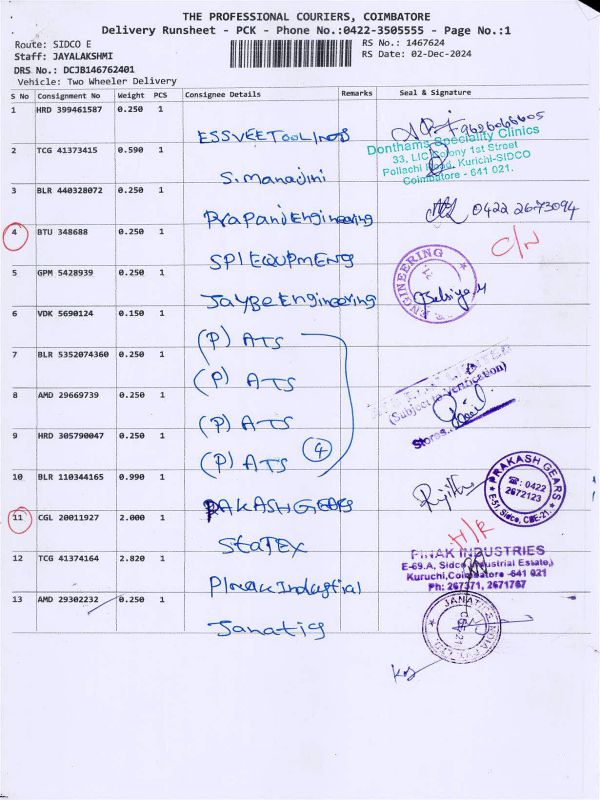 THE PROFESSIONAL COURIERS, COIMBATORE
Delivery Runsheet - PCK - Phone No.:0422-3505555 - Page No.:1
Route: SIDCO E
RS No.: 1467624
Staff: JAYALAKSHMI
RS Date: 02-Dec-2024
DRS No.: DCJB146762401
Vehicle: Two Wheeler Delivery
S No Consignment No Weight PCS Consignee Details Remarks Seal & Signature
1 HRD 399461587 0.250 1 ESSVEE TooLings 9696066605
Donthams Speciality Clinics
33, LIC Colony 1st Street
Pollachi Road, Kurichi-SIDCO
Coimbatore - 641 021.
2 TCG 41373415 0.590 1 S. Manadjini
3 BLR 440328072 0.250 1 Prapani Engineering 0422 2673094
4 BTU 348688 0.250 1 SPI EQUPMENG C/N
5 GPM 5428939 0.250 1 Jaybe Engineering ENGINEERING
6 VDK 5690124 0.150 1 (P) ATS
7 BLR 5352074360 0.250 1 (P) ATS
(Subject to Verification)
Stores
8 AMD 29669739 0.250 1 (P) ATS
9 HRD 305790047 0.250 1 (P) ATS 4
10 BLR 110344165 0.990 1 PAKASH GEARS
PRAKASH GEARS
☎: 0422
2672123
E-51, Sidco, CBE-21.
11 CGL 20011927 2.000 1 StaTEX H/R
12 TCG 41374164 2.820 1 Pinak Industrial
PINAK INDUSTRIES
E-69.A, Sidco Industrial Estate,
Kuruchi,Coimbatore -641 021
Ph: 267371, 2671767
13 AMD 29302232 0.250 1 Janatics
JANATICS